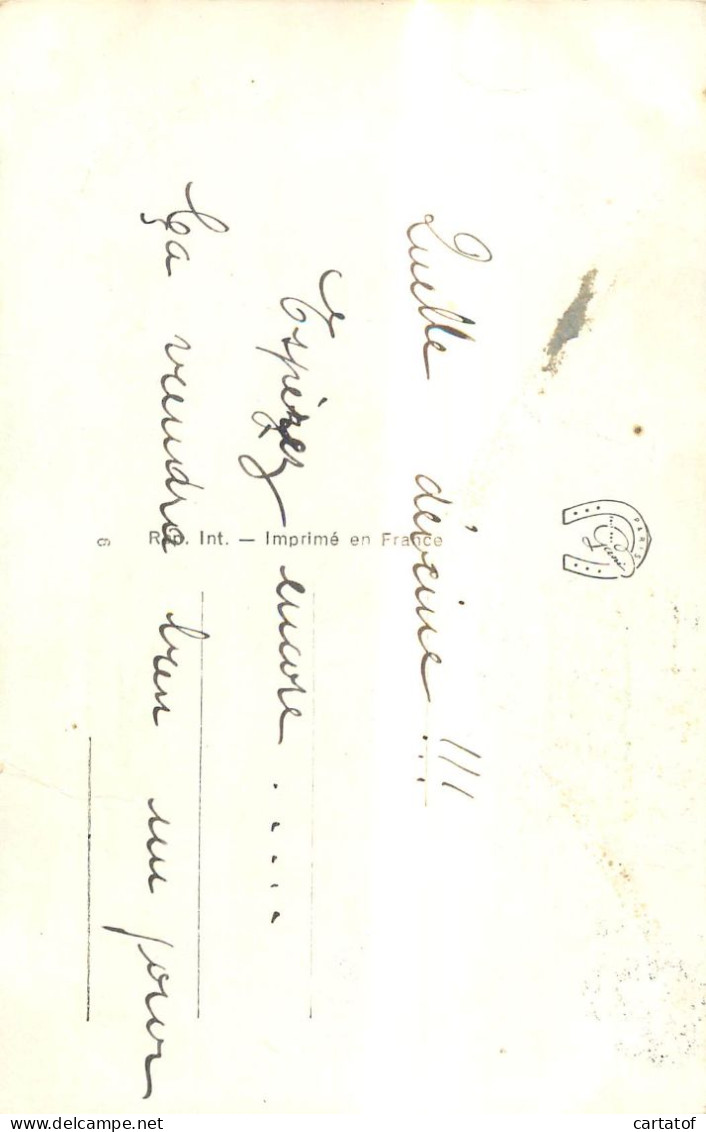 Quelle déveine !!!
Espérez encore .....
Ça viendra bien un jour
6 Rep. Int. — Imprimé en France
PARIS
delcampe.net
cartatof